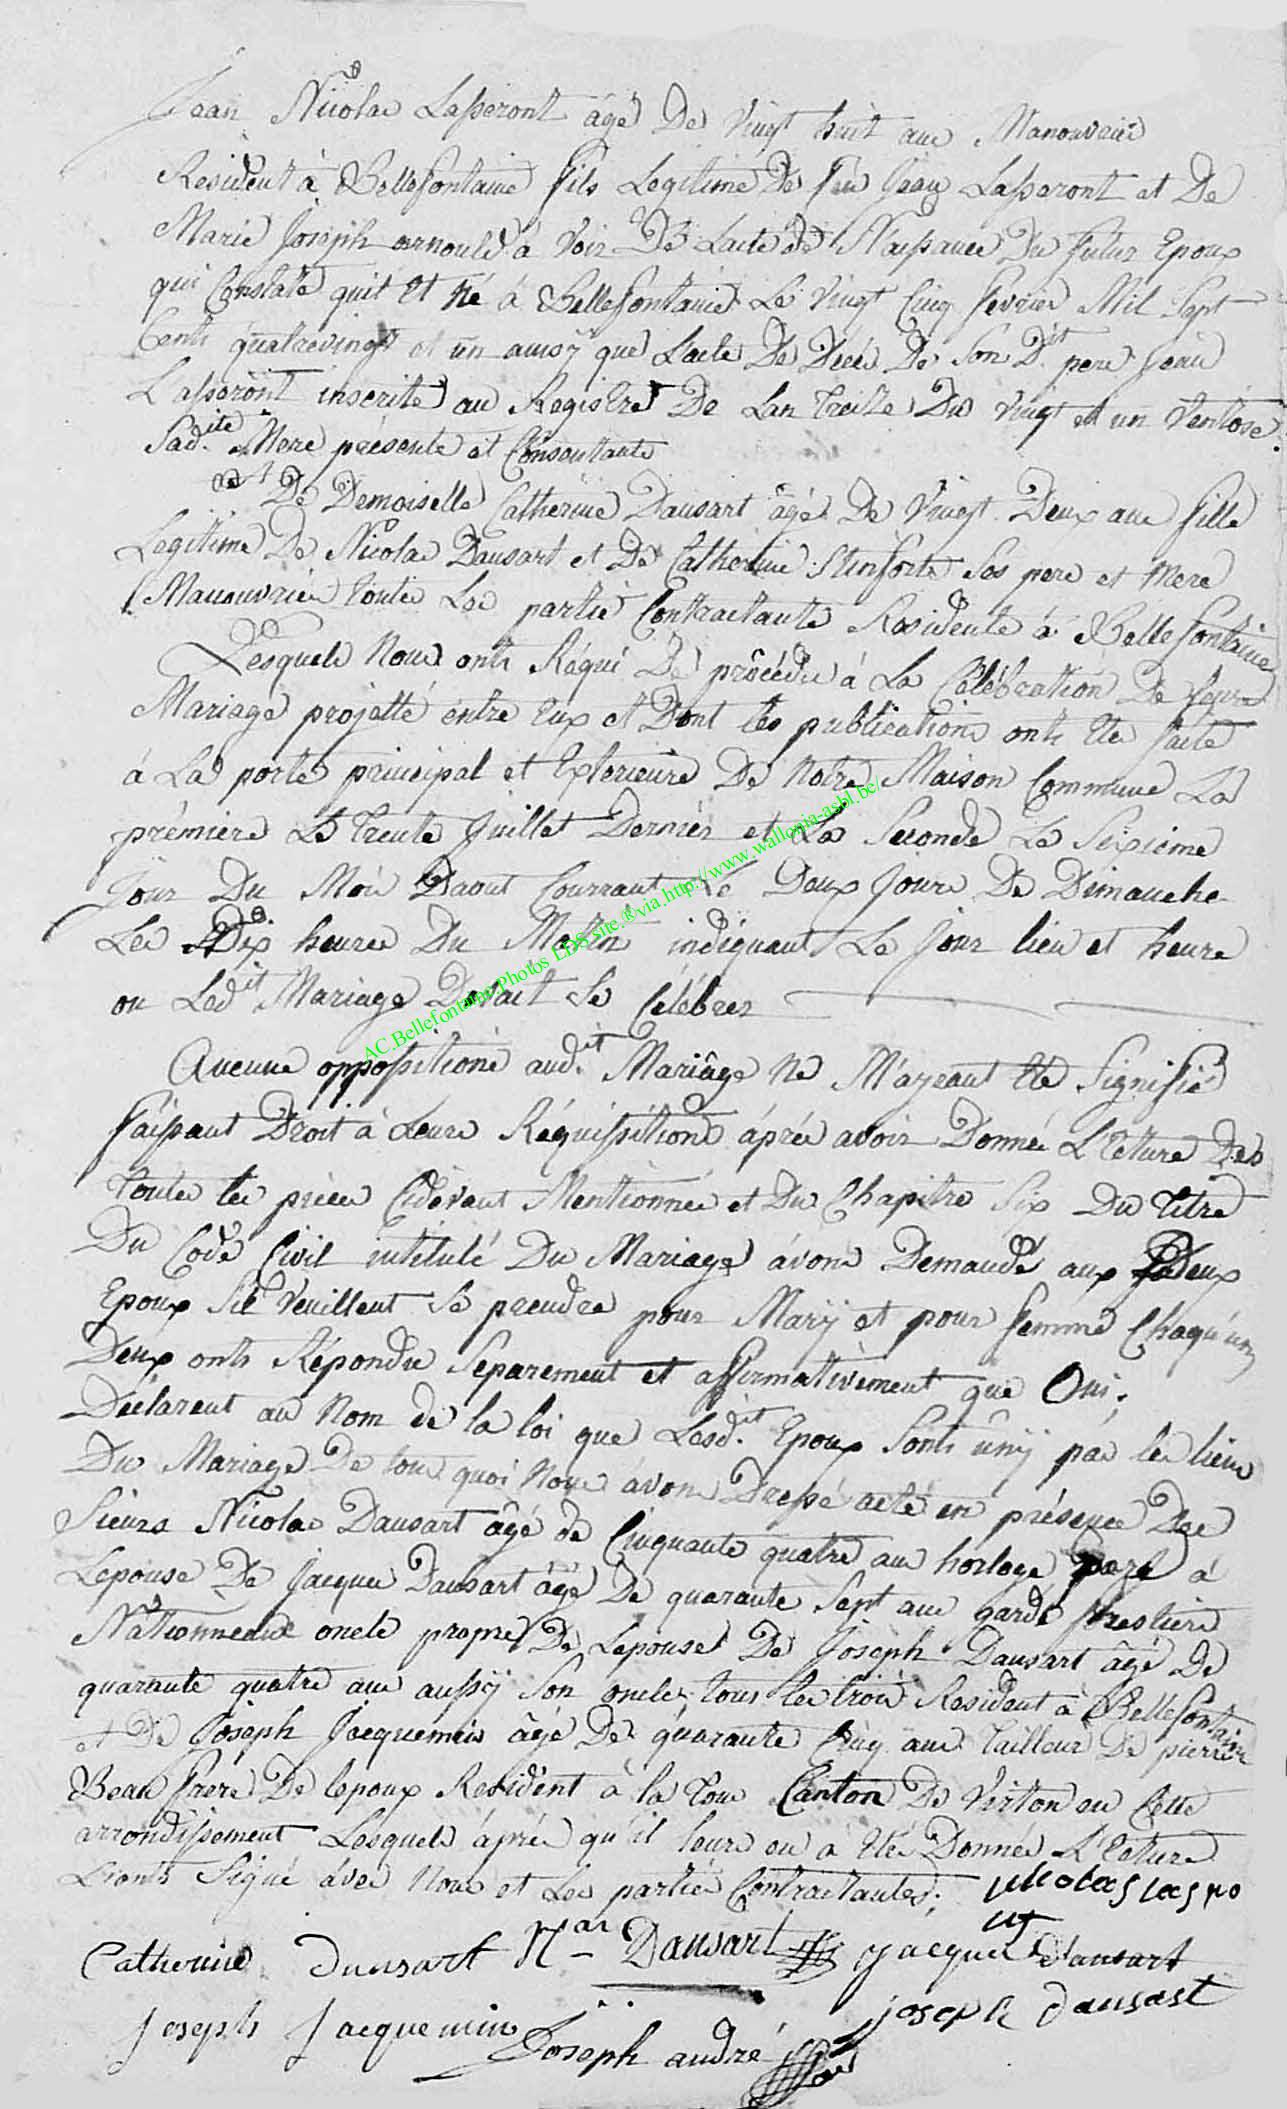 Jean Nicolas Lasseront âgé De Vingt huit ans Manouvrié
Resident à Bellefontaine fils Legitime De feu Jean Lasseront et De
Marie Joseph arnould à Voir De Lacte de Naissance Du futur Epoux
qui Constate quil Et né à Bellefontaine Le Vingt Cinq fevrier Mil Sept
Cents quatrevingt et un aussy que Lacte De Décé De Son Dit pere Jean
Lasseront inscrite au Registre De Lan Treize Du Vingt et un Ventose.
Sadite Mere présente et Consentante
et De Demoiselle Catherine Dausart âgé De Vingt Deux ans fille
Legitime De Nicolas Dausart et De Catherine Ses pere et Mere
Manouvrier toute Les partie Contractante Residente à Bellefontaine
Lesquels Nous onts Réqui De procéder à La Célébration De leure
Mariage projetté entre Eux et Dont les publications onts Ete faite
à La porte principal et Exterieure De Notre Maison Commune La
première Le Trente Juillet Dernier et La Seconde Le Sixieme
Jour Du Moi Daout Courrant Lé Deux Jours De Dimanche
Les Dix heures Du Matin indiquant Le Jour lieu et heure
ou Ledit Mariage Devait Se Célébrer
Aucune oppositions audit Mariâge Ne M'ayeant Ete Signifié
faissant Droit à Leure Réquissitions áprés avoir Donnée L'Ecture Des
Toutes les pièces Cidevant Mentionnés et Du Chapitre Six Du Titre
Du Code Civil intitulé Du Mariage ávons Demandé aux Deux
Epoux Sil Veuillent Se prendre pour Marÿ et pour femme Chaqu'un
Deux onts Répondu Séparement et affirmativement que Oui.
Déclarent au Nom de la loi que Lesdit Epoux Sonts ûnÿ par les liens
Du Mariage De tous quoi Nous ávons Dressé acte en présence Des
Sieurs Nicolas Dausart âgé de Cinquante quatre ans horloge pere à
Lepouse De Jacques Dausart âgé De quarante Sept ans garde forestiere
Nationneaux oncle propre De Lepouse De Joseph Dausart âgé De
quarante quatre ans aussÿ Son oncle tous les trois Resident à Bellefontaine
et De Joseph Jacquemin âgé De quarante Cinq ans Tailleur De pierre
Beau frere De lepoux Resident à la Tour Canton De Virton en Cette
arrondissement Lesquels áprés qu'il leure en à Eté Donnée L'Ecture
Lionts Signé ávec Nous et Les partie Contractantes.
Catherine Dausart Nas Dausart Jacques dausart
Joseph Jacquemin joseph dausart
Joseph andré
AC.Bellefontaine.Photos EDS site.®via.http://www.wallonia-asbl.be/